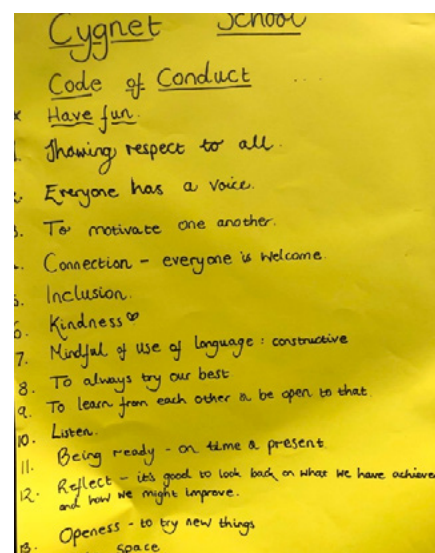 Cygnet School
Code of Conduct ...
* Have fun.
Showing respect to all.
2. Everyone has a voice.
3. To motivate one another.
4. Connection - everyone is welcome.
5. Inclusion.
6. Kindness ♡
7. Mindful of use of language : constructive
8. To always try our best
9. To learn from each other & be open to that.
10. Listen.
11. Being ready - on time & present
12. Reflect - it's good to look back on what we have achieve
and how we might improve.
13. Openess - to try new things
space